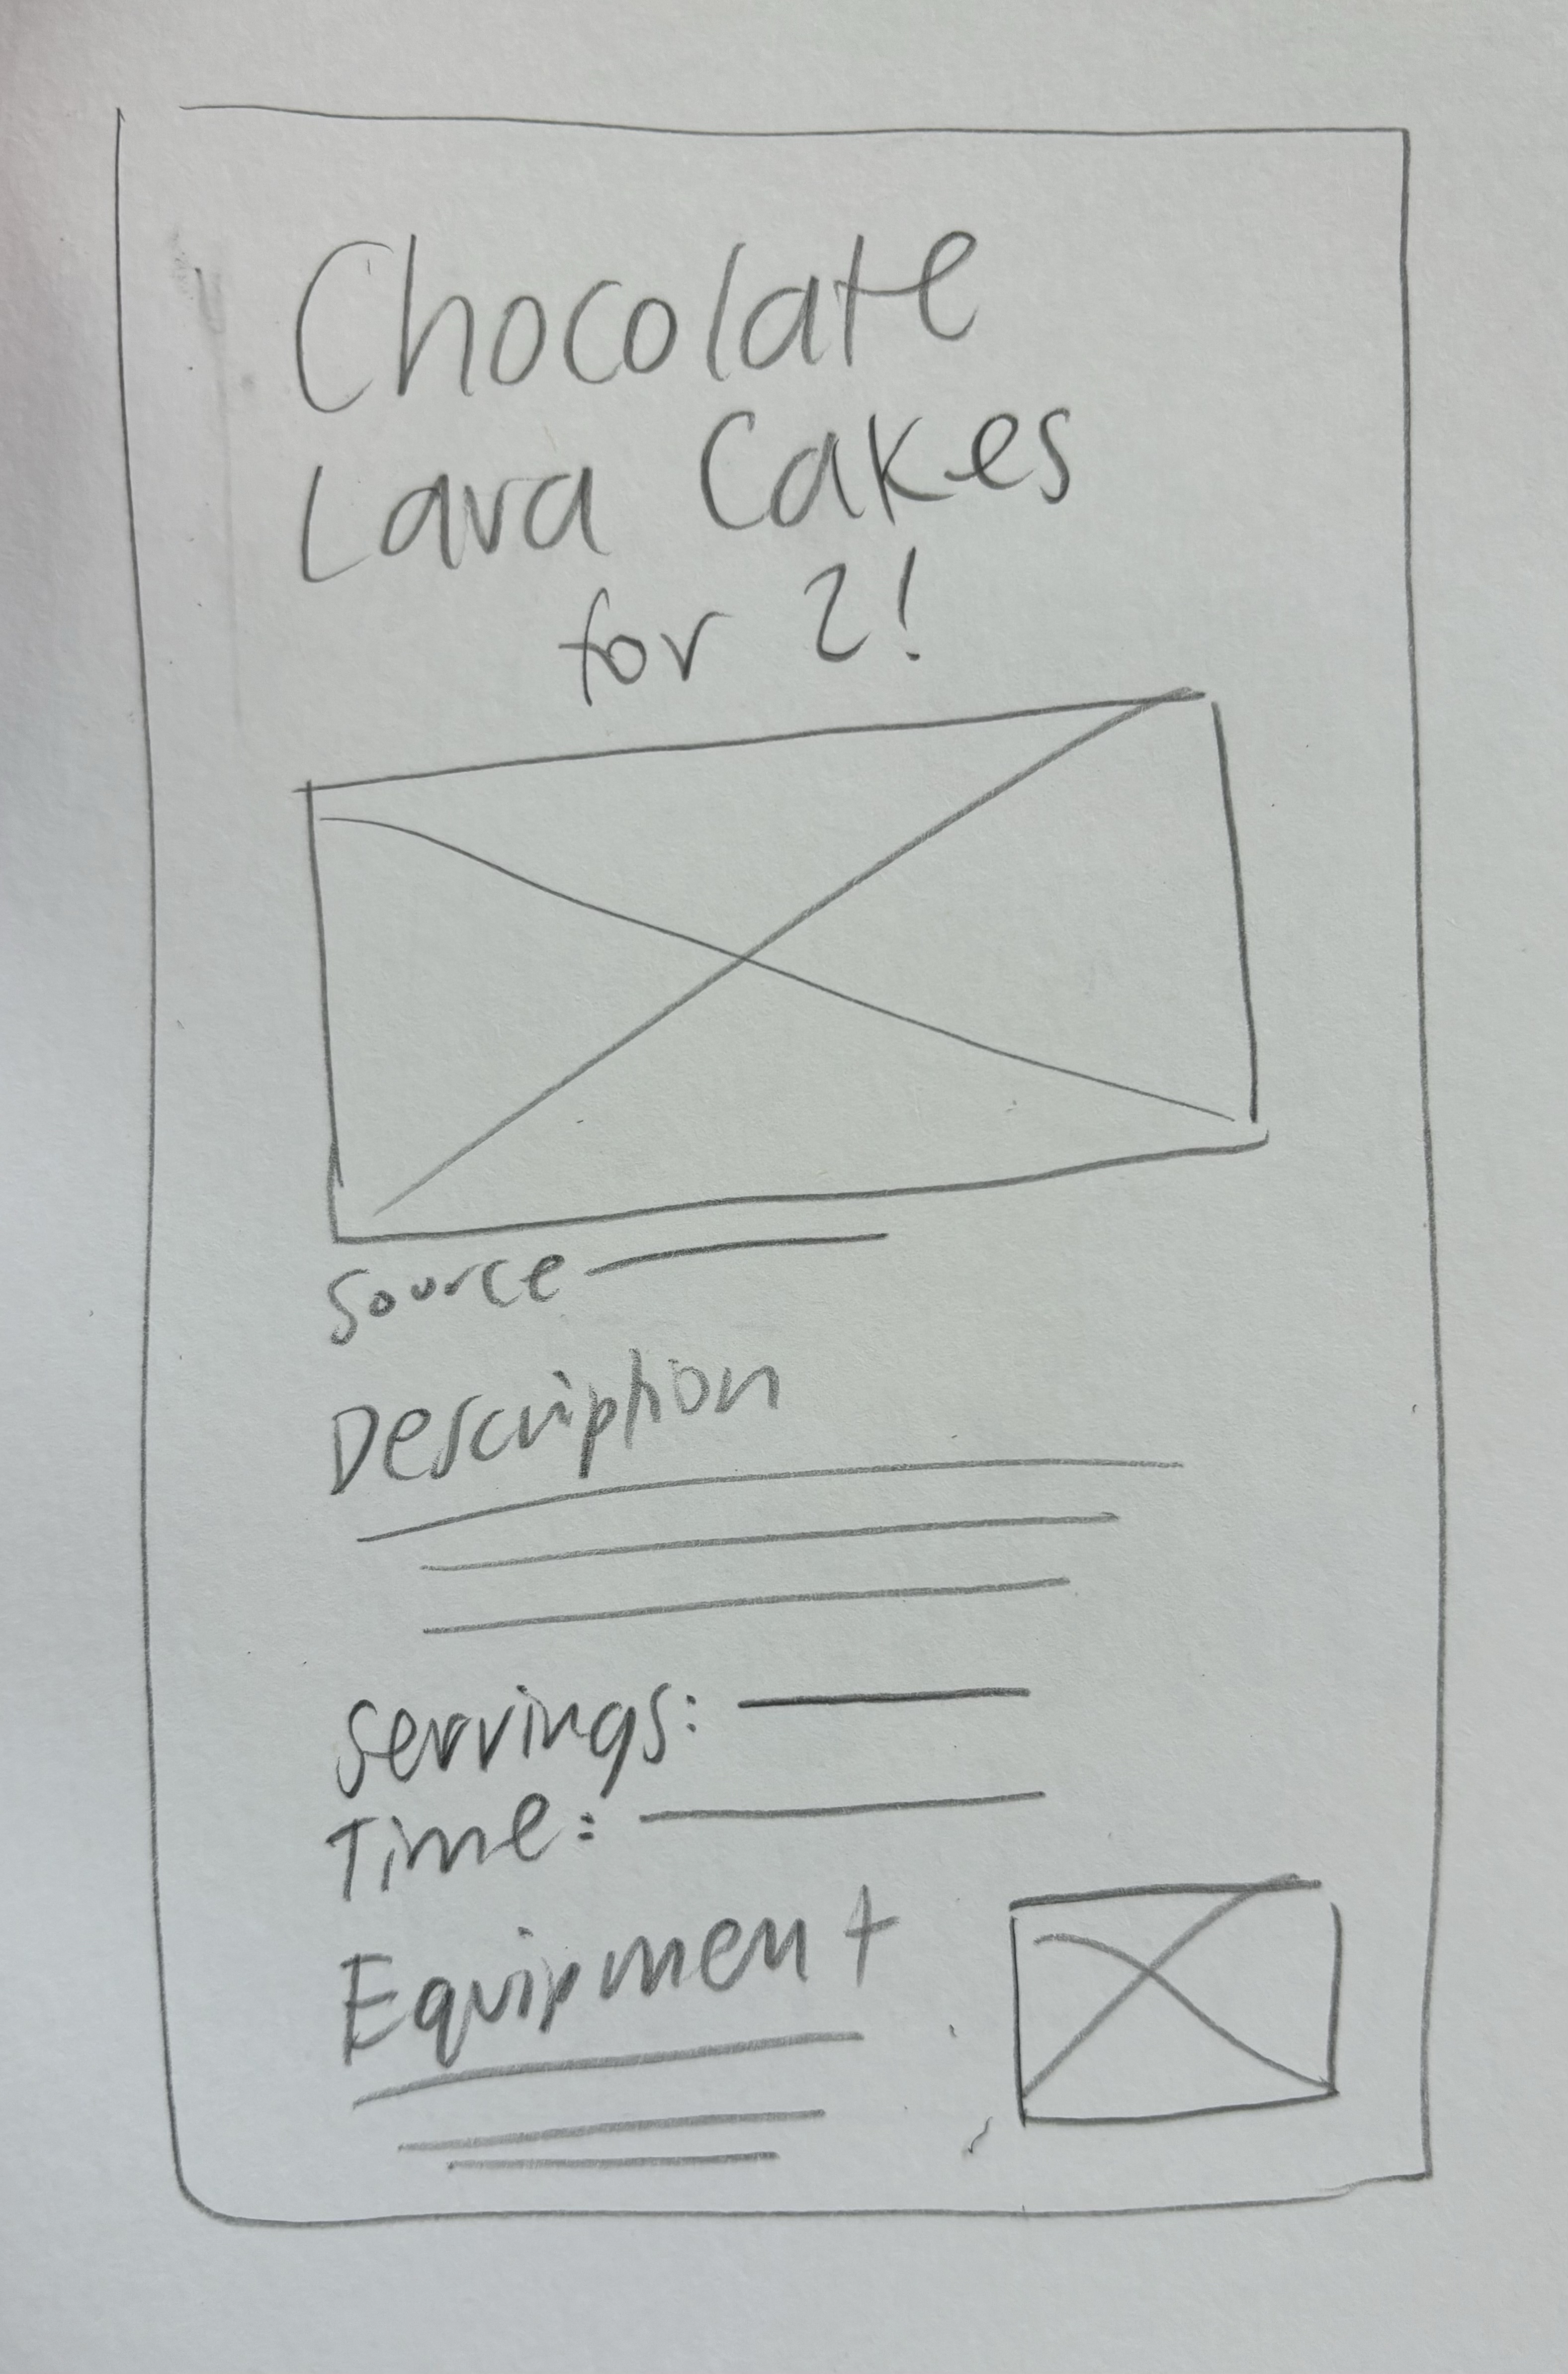 Chocolate
Lava Cakes
for 2!
Source
Description
Servings:
Time:
Equipment